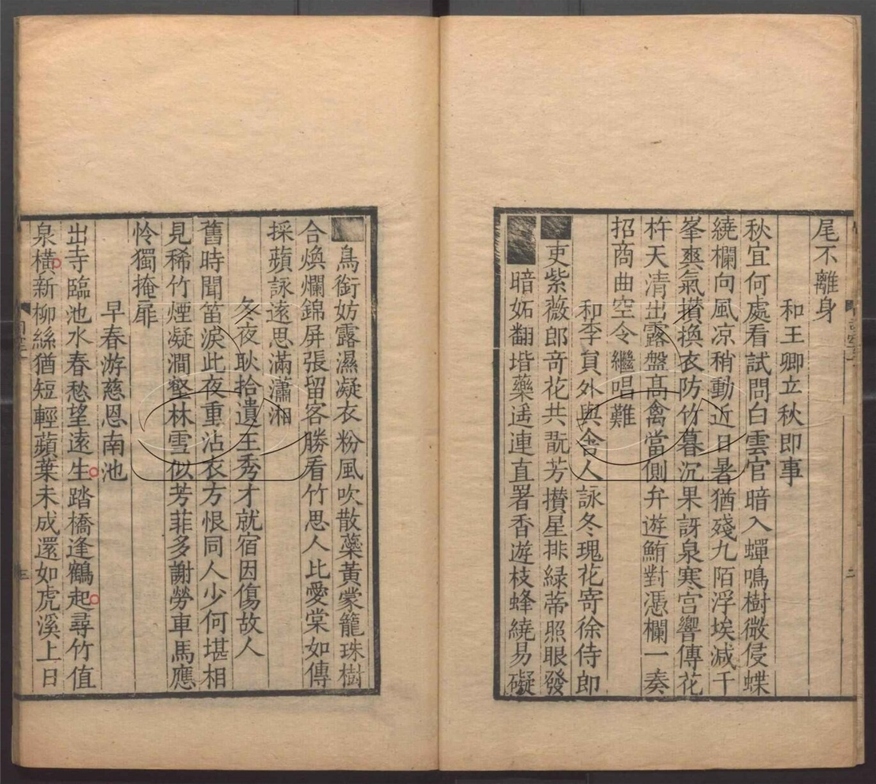 尾不離身
和王卿立秋即事
秋宜何處看試問白雲官暗入蟬鳴樹微侵蝶
繞欄向風凉稍動近日暑猶殘九陌浮埃減千
峯爽氣攢換衣防竹暮沉果訝泉寒宫響傳花
杵天清出露盤高禽當側弁遊鮪對憑欄一奏
招商曲空令繼唱難
和李員外與舍人詠冬瑰花寄徐侍郎
吏紫薇郎奇花共翫芳攢星排緑蒂照眼發
暗妬翻堦藥遥連直署香遊枝蜂繞易礙
鳥銜妨露濕凝衣粉風吹散蘂黄蒙籠珠樹
合煥爛錦屏張留客勝看竹思人比愛棠如傳
採蘋詠遠思滿瀟湘
冬夜耿拾遺王秀才就宿因傷故人
舊時聞笛淚此夜重沾衣方恨同人少何堪相
見稀竹煙凝澗壑林雪似芳菲多謝勞車馬應
怜獨掩扉
早春游慈恩南池
出寺臨池水春愁望遠生踏橋逢鶴起尋竹值
泉横新柳絲猶短輕蘋葉未成還如虎溪上日
二
三